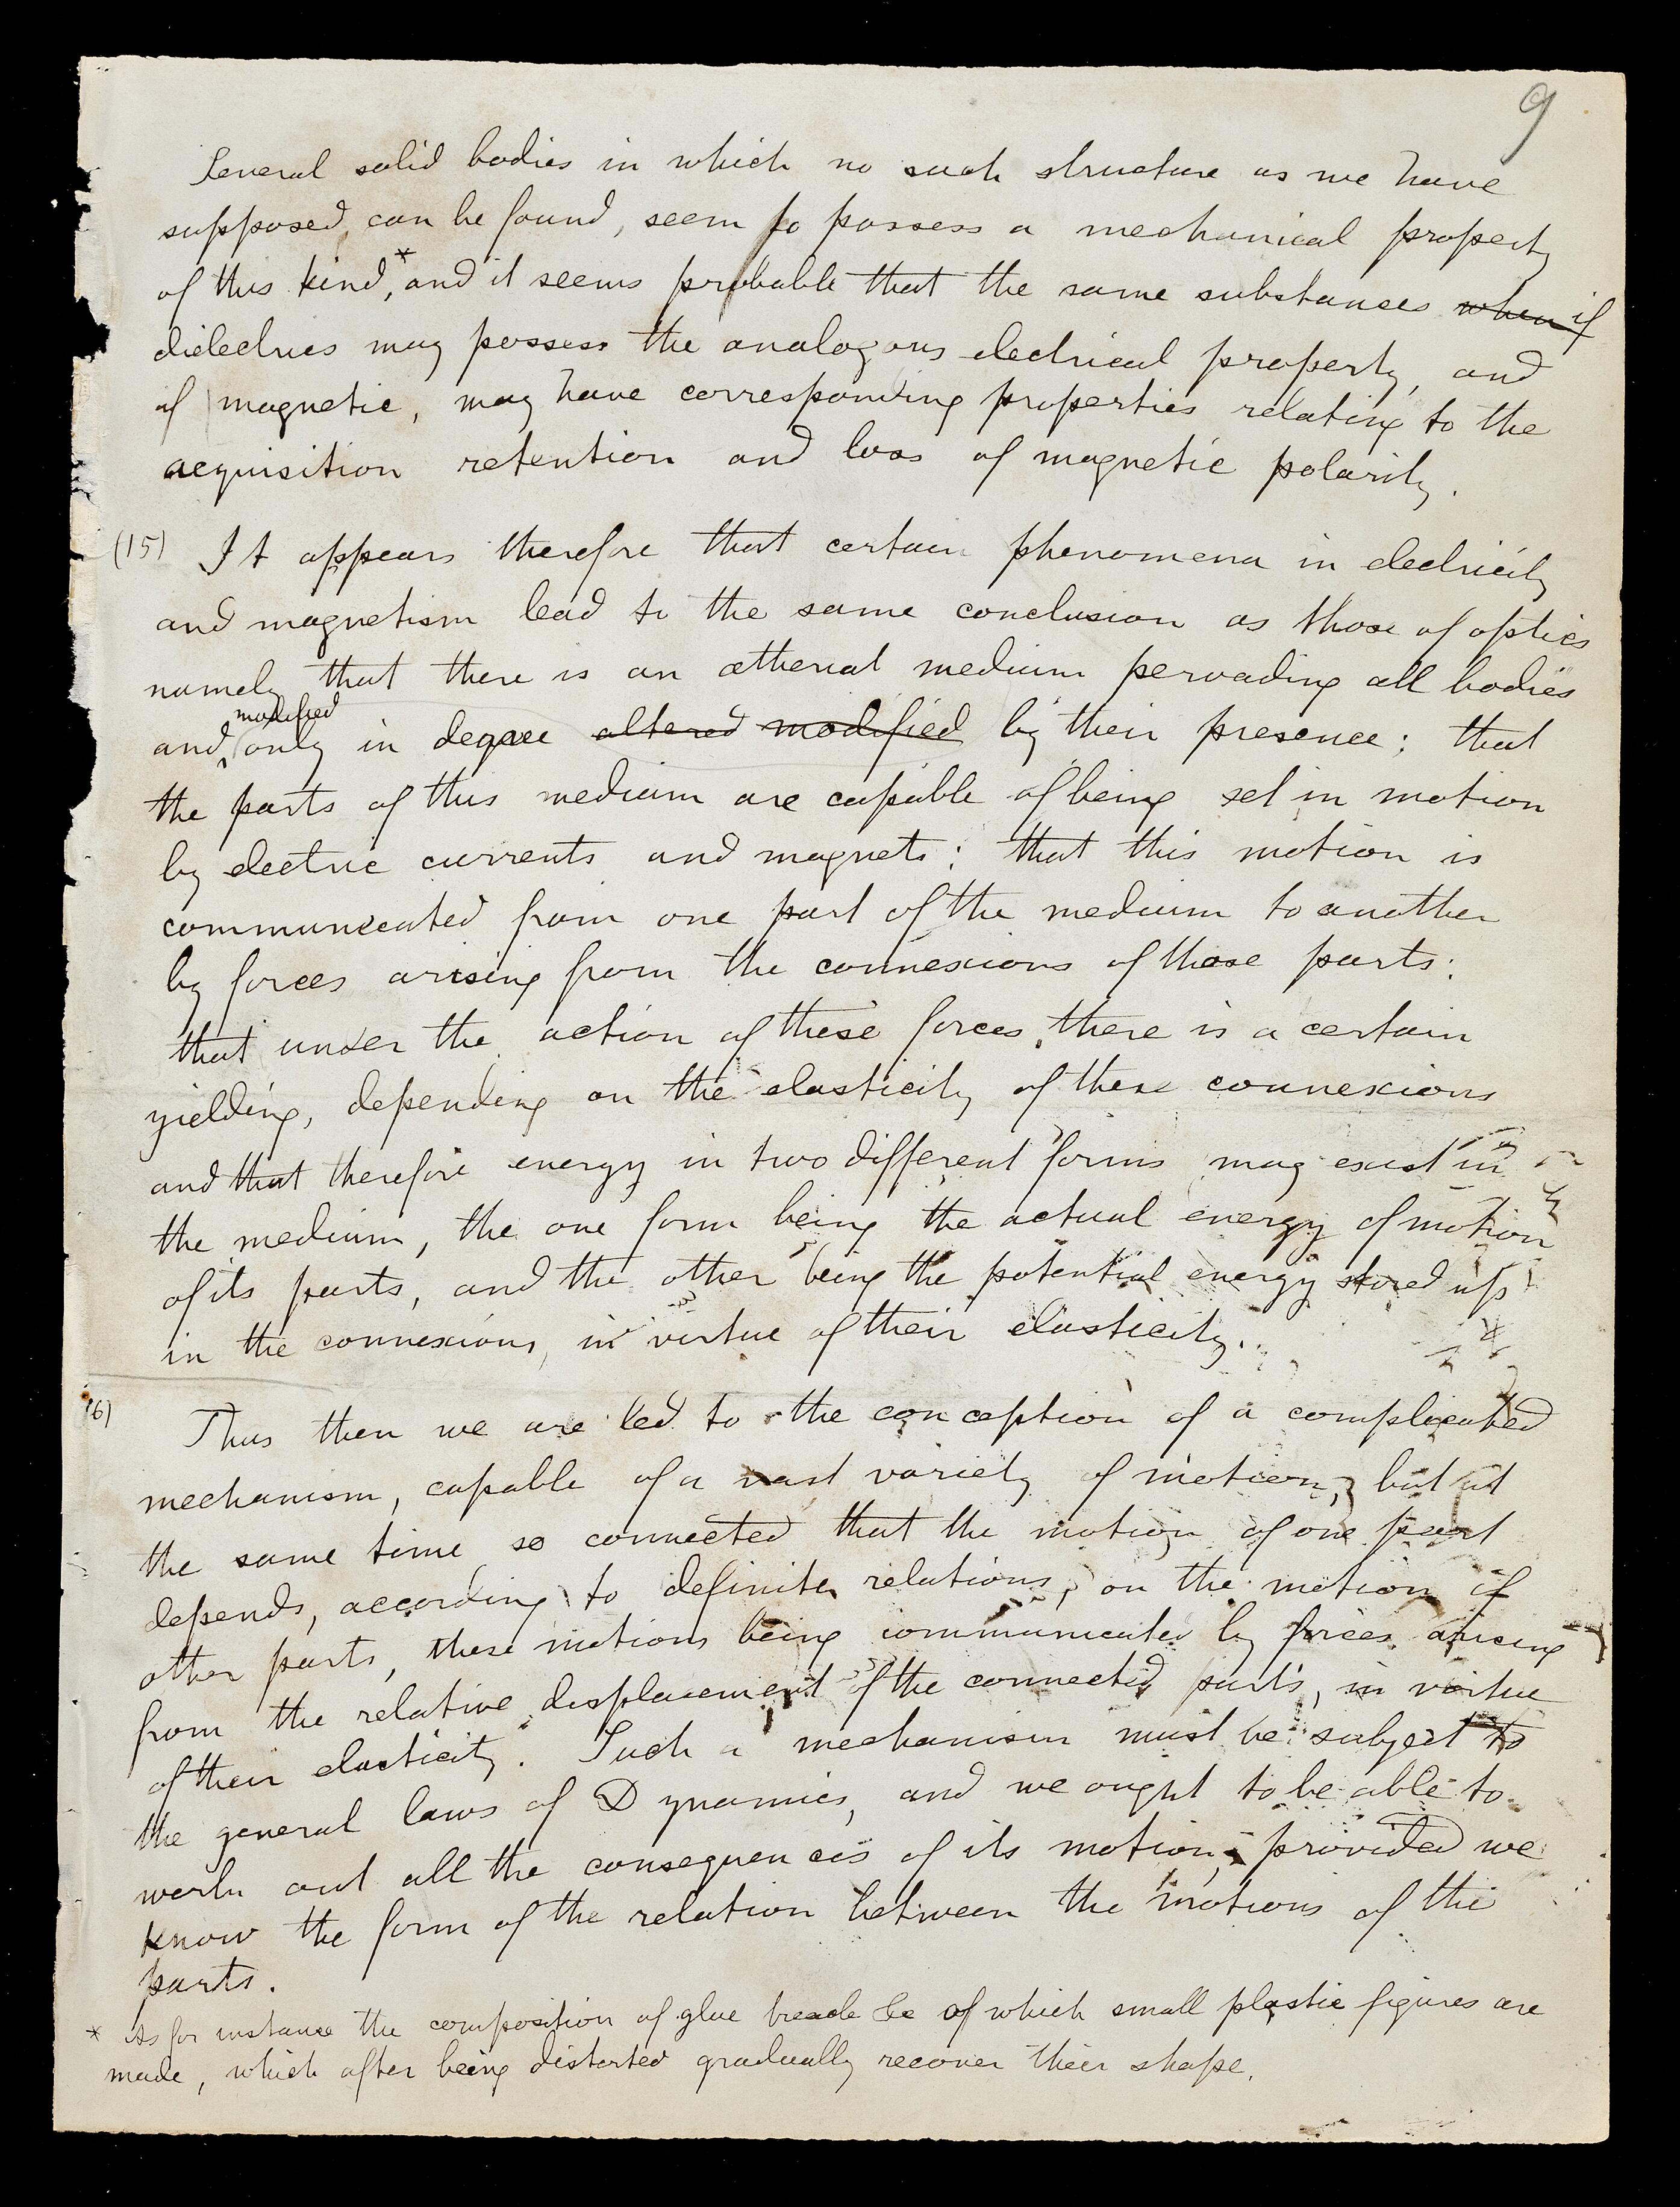 9
Several solid bodies in which no such structure as we have
supposed, can be found, seem to possess a mechanical property
of this kind,* and it seems probable that the same substances when if
dielectrics may possess the analogous electrical property, and
if magnetic, may have corresponding properties relating to the
acquisition retention and loss of magnetic polarity.
(15) It appears therefore that certain phenomena in electricity
and magnetism lead to the same conclusion as those of optics
namely that there is an æthereal medium pervading all bodies
modified
and only in degree altered modified by their presence; that
the parts of this medium are capable of being set in motion
by electric currents and magnets; that this motion is
communicated from one part of the medium to another
by forces arising from the connexions of those parts;
that under the action of these forces there is a certain
yielding, depending on the elasticity of these connexions
and that therefore energy in two different forms may exist in
the medium, the one form being the actual energy of motion
of its parts, and the other being the potential energy stored up
in the connexions, in virtue of their elasticity.
16) Thus then we are led to the conception of a complicated
mechanism, capable of a vast variety of motion, but at
the same time so connected that the motion of one part
depends, according to definite relations, on the motion of
other parts, these motions being communicated by forces arising
from the relative displacement of the connected parts, in virtue
of their elasticity. Such a mechanism must be subject to
the general laws of Dynamics, and we ought to be able to
work out all the consequences of its motion, provided we
know the form of the relation between the motions of the
parts.
* As for instance the composition of glue treacle &c of which small plastic figures are
made, which after being distorted gradually recover their shape.